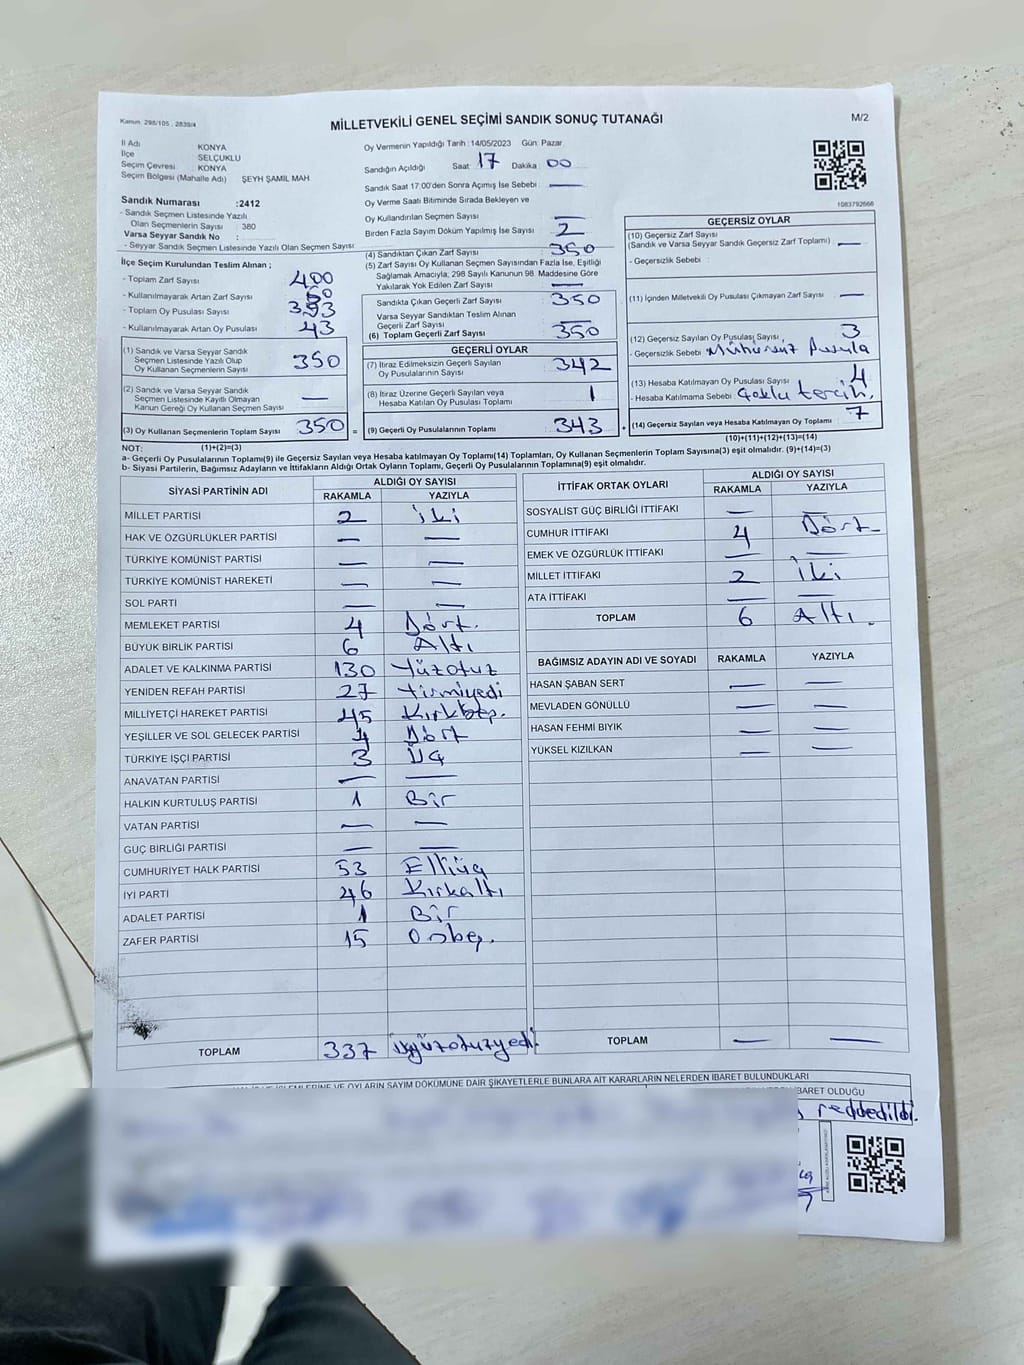 Kanun. 298/105 , 2839/4
MİLLETVEKİLİ GENEL SEÇİMİ SANDIK SONUÇ TUTANAĞI
M/2
İl Adı KONYA
İlçe SELÇUKLU
Seçim Çevresi KONYA
Seçim Bölgesi (Mahalle Adı) ŞEYH ŞAMİL MAH
Sandık Numarası :2412
- Sandık Seçmen Listesinde Yazılı
Olan Seçmenlerin Sayısı : 380
Varsa Seyyar Sandık No :
- Seyyar Sandık Seçmen Listesinde Yazılı Olan Seçmen Sayısı
İlçe Seçim Kurulundan Teslim Alınan ;
- Toplam Zarf Sayısı 400
- Kullanılmayarak Artan Zarf Sayısı 50
- Toplam Oy Pusulası Sayısı 393
- Kullanılmayarak Artan Oy Pusulası 43
(1) Sandık ve Varsa Seyyar Sandık
Seçmen Listesinde Yazılı Olup
Oy Kullanan Seçmenlerin Sayısı 350
(2) Sandık ve Varsa Seyyar Sandık
Seçmen Listesinde Kayıtlı Olmayan
Kanun Gereği Oy Kullanan Seçmen Sayısı —
(3) Oy Kullanan Seçmenlerin Toplam Sayısı 350 =
Oy Vermenin Yapıldığı Tarih : 14/05/2023 Gün: Pazar
Sandığın Açıldığı Saat: 17 Dakika : 00
Sandık Saat 17:00'den Sonra Açımış İse Sebebi : —
Oy Verme Saati Bitiminde Sırada Bekleyen ve
Oy Kullandırılan Seçmen Sayısı —
Birden Fazla Sayım Döküm Yapılmış İse Sayısı 2
(4) Sandıktan Çıkan Zarf Sayısı 350
(5) Zarf Sayısı Oy Kullanan Seçmen Sayısından Fazla İse, Eşitliği
Sağlamak Amacıyla; 298 Sayılı Kanunun 98. Maddesine Göre
Yakılarak Yok Edilen Zarf Sayısı —
Sandıkta Çıkan Geçerli Zarf Sayısı 350
Varsa Seyyar Sandıktan Teslim Alınan
Geçerli Zarf Sayısı —
(6) Toplam Geçerli Zarf Sayısı 350
GEÇERLİ OYLAR
(7) İtiraz Edilmeksizin Geçerli Sayılan
Oy Pusulalarının Sayısı 342
(8) İtiraz Üzerine Geçerli Sayılan veya
Hesaba Katılan Oy Pusulası Toplamı 1
(9) Geçerli Oy Pusulalarının Toplamı 343
1083792666
GEÇERSİZ OYLAR
(10) Geçersiz Zarf Sayısı
(Sandık ve Varsa Seyyar Sandık Geçersiz Zarf Toplamı) —
- Geçersizlik Sebebi :
(11) İçinden Milletvekili Oy Pusulası Çıkmayan Zarf Sayısı —
(12) Geçersiz Sayılan Oy Pusulası Sayısı 3
- Geçersizlik Sebebi Mühürsüz Pusula
(13) Hesaba Katılmayan Oy Pusulası Sayısı 4
- Hesaba Katılmama Sebebi Çoklu tercih.
(14) Geçersiz Sayılan veya Hesaba Katılmayan Oy Toplamı 7
NOT: (1)+(2)=(3)
(10)+(11)+(12)+(13)=(14)
a- Geçerli Oy Pusulalarının Toplamı(9) ile Geçersiz Sayılan veya Hesaba katılmayan Oy Toplamı(14) Toplamları, Oy Kullanan Seçmenlerin Toplam Sayısına(3) eşit olmalıdır. (9)+(14)=(3)
b- Siyasi Partilerin, Bağımsız Adayların ve İttifakların Aldığı Ortak Oyların Toplamı, Geçerli Oy Pusulalarının Toplamına(9) eşit olmalıdır.
SİYASİ PARTİNİN ADI ALDIĞI OY SAYISI
RAKAMLA YAZIYLA
MİLLET PARTİSİ 2 iki
HAK VE ÖZGÜRLÜKLER PARTİSİ — —
TÜRKİYE KOMÜNİST PARTİSİ — —
TÜRKİYE KOMÜNİST HAREKETİ — —
SOL PARTİ — —
MEMLEKET PARTİSİ 4 Dört.
BÜYÜK BİRLİK PARTİSİ 6 Altı
ADALET VE KALKINMA PARTİSİ 130 Yüzotuz
YENİDEN REFAH PARTİSİ 27 Yirmiyedi
MİLLİYETÇİ HAREKET PARTİSİ 45 Kırkbeş.
YEŞİLLER VE SOL GELECEK PARTİSİ 4 Dört
TÜRKİYE İŞÇİ PARTİSİ 3 Üç
ANAVATAN PARTİSİ — —
HALKIN KURTULUŞ PARTİSİ 1 Bir
VATAN PARTİSİ — —
GÜÇ BİRLİĞİ PARTİSİ — —
CUMHURİYET HALK PARTİSİ 53 Elliüç
İYİ PARTİ 46 Kırkaltı
ADALET PARTİSİ 1 Bir
ZAFER PARTİSİ 15 Onbeş.
TOPLAM 337 üçyüzotuzyedi.
İTTİFAK ORTAK OYLARI ALDIĞI OY SAYISI
RAKAMLA YAZIYLA
SOSYALİST GÜÇ BİRLİĞİ İTTİFAKI — —
CUMHUR İTTİFAKI 4 Dört
EMEK VE ÖZGÜRLÜK İTTİFAKI — —
MİLLET İTTİFAKI 2 İki
ATA İTTİFAKI — —
TOPLAM 6 Altı.
BAĞIMSIZ ADAYIN ADI VE SOYADI RAKAMLA YAZIYLA
HASAN ŞABAN SERT — —
MEVLADEN GÖNÜLLÜ — —
HASAN FEHMİ BIYIK — —
YÜKSEL KIZILKAN — —
TOPLAM — —
VE OYLARIN SAYIM DÖKÜMÜNE DAİR ŞİKAYETLERLE BUNLARA AİT KARARLARIN NELERDEN İBARET BULUNDUKLARI
İBARET OLDUĞU
reddedildi.